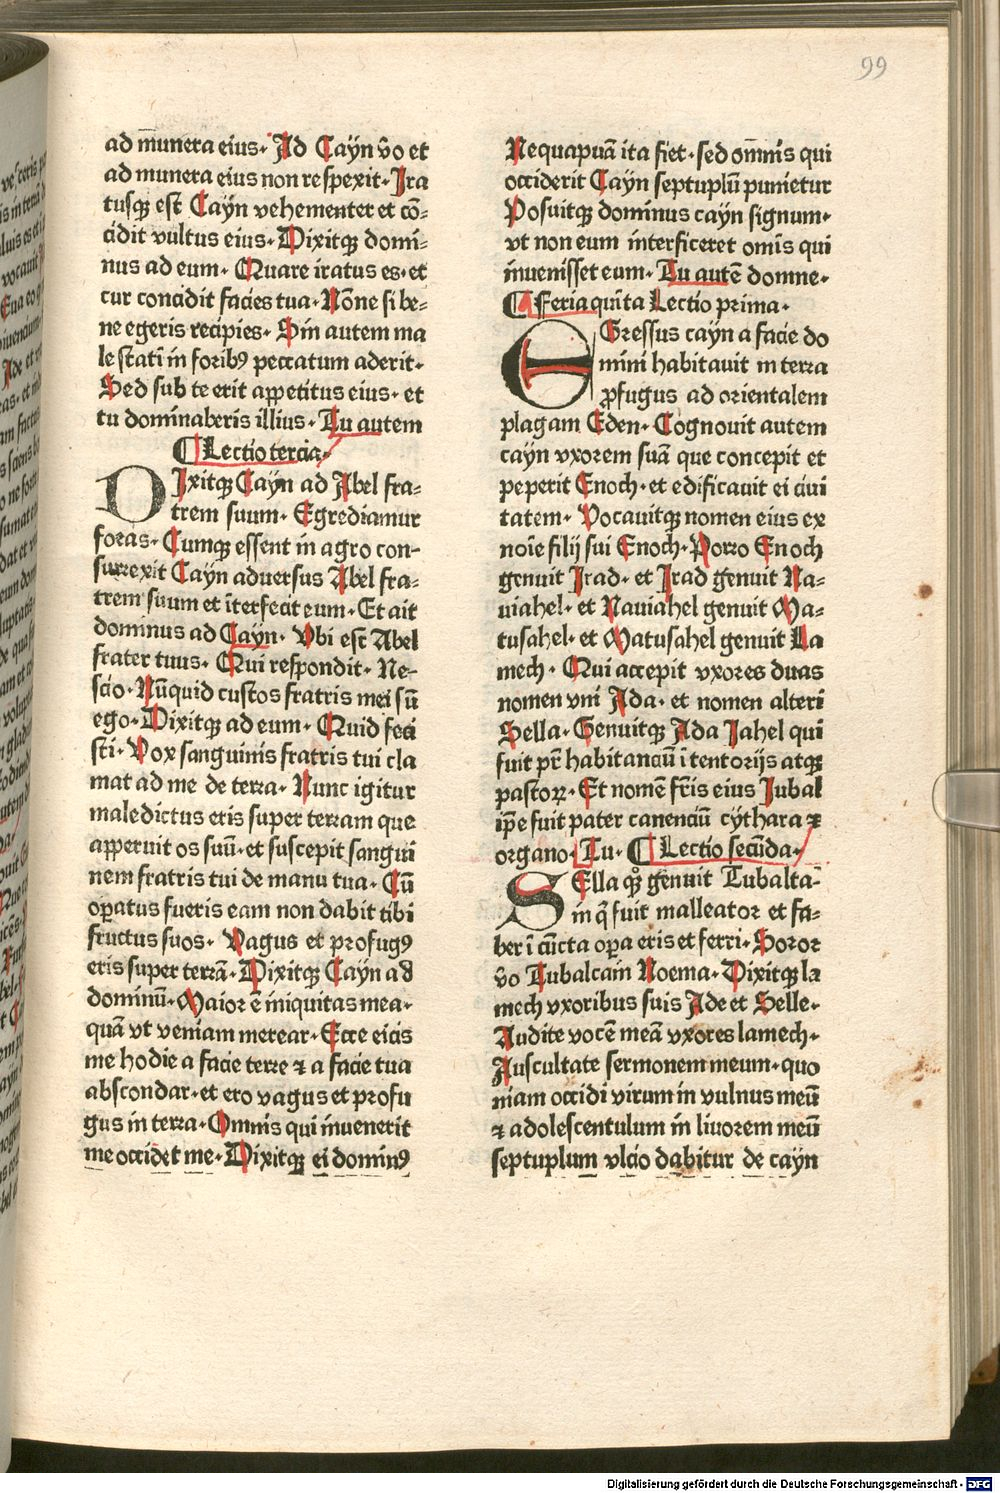 99
ad munera eius· Ad Cayn v̄o et
ad munera eius non respexit· Ira
tusqꝫ est Cayn vehementer et cō-
cidit vultus eius· Dixitqꝫ domi-
nus ad eum· Quare iratus es· et
cur concidit facies tua· Nōne si be-
ne egeris recipies· Sin autem ma
le statī in foribꝰ peccatum aderit·
Sed sub te erit appetitus eius· et
tu dominaberis illius· Tu autem
¶ Lectio tercia·
DIxitqꝫ Cayn ad Abel fra-
trem suum· Egrediamur
foras· Cumqꝫ essent in agro con-
surrexit Cayn adversus Abel fra-
trem suum et īterfecit eum· Et ait
dominus ad Cayn· Vbi est Abel
frater tuus· Qui respondit· Ne-
scio· Nūquid custos fratris mei sū
ego· Dixitqꝫ ad eum· Quid feci
sti· Vox sanguinis fratris tui cla
mat ad me de terra· Nunc igitur
maledictus eris super terram que
apperuit os suū· et suscepit sangui
nem fratris tui de manu tua· Cū
oꝑatus fueris eam non dabit tibi
fructus suos· Vagus et profugꝰ
eris super terrā· Dixitqꝫ Cayn ad
dominū· Maior ē iniquitas mea·
quā vt veniam merear· Ecce eicis
me hodie a facie terre ⁊ a facie tua
abscondar· et ero vagus et profu
gus in terra· Omnis qui invenerit
me occidet me· Dixitqꝫ ei dominꝰ
Nequaquā ita fiet· sed om̄nis qui
occiderit Cayn septuplū punietur
Posuitqꝫ dominus cayn signum·
vt non eum interficeret omīs qui
invenisset eum· Tu autē domne·
¶ Feria quīta Lectio prima·
EGressus cayn a facie do
mini habitavit in terra
ꝓfugus ad orientalem
plagam Eden· Cognovit autem
cayn vxorem suā que concepit et
peperit Enoch· et edificauit ei ciui
tatem· Vocavitqꝫ nomen eius ex
noīe filij sui Enoch· Porro Enoch
genuit Irad· et Irad genuit Na-
viahel· et Naviahel genuit Ma-
tusahel· et Matusahel genuit La
mech· Qui accepit vxores duas
nomen vni Ada· et nomen alteri
Sella· Genuitqꝫ Ada Jahel qui
fuit pr̄ habitanciū ī tentorijs atqꝫ
pastoꝝ· Et nomē fr̄is eius Jubal
ip̄e fuit pater canenciū cythara ⁊
organo· Tu· ¶ Lectio secūda·
SElla qꝫ genuit Tubalta-
in q̄ fuit malleator et fa-
ber ī cūcta oꝑa eris et ferri· Soror
v̄o Tubalcain Noema· Dixitqꝫ la
mech vxoribus suis Ade et Selle·
Audite vocē meā vxores lamech·
Auscultate sermonem meum· quo
niam occidi virum in vulnus meū
⁊ adolescentulum in livorem meū
septuplum vlcio dabitur de cayn
Digitalisierung gefördert durch die Deutsche Forschungsgemeinschaft - DFG